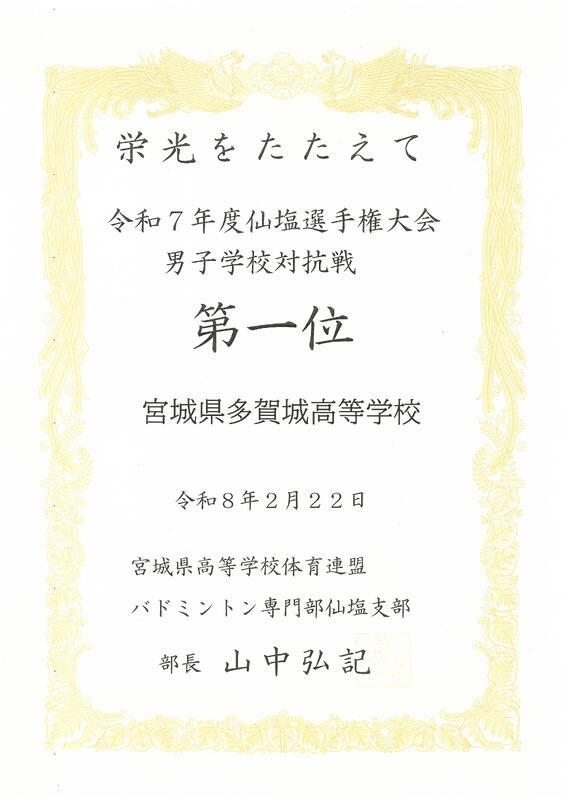 栄光をたたえて
令和７年度仙塩選手権大会
男子学校対抗戦
第一位
宮城県多賀城高等学校
令和８年２月２２日
宮城県高等学校体育連盟
バドミントン専門部仙塩支部
部長 山中弘記